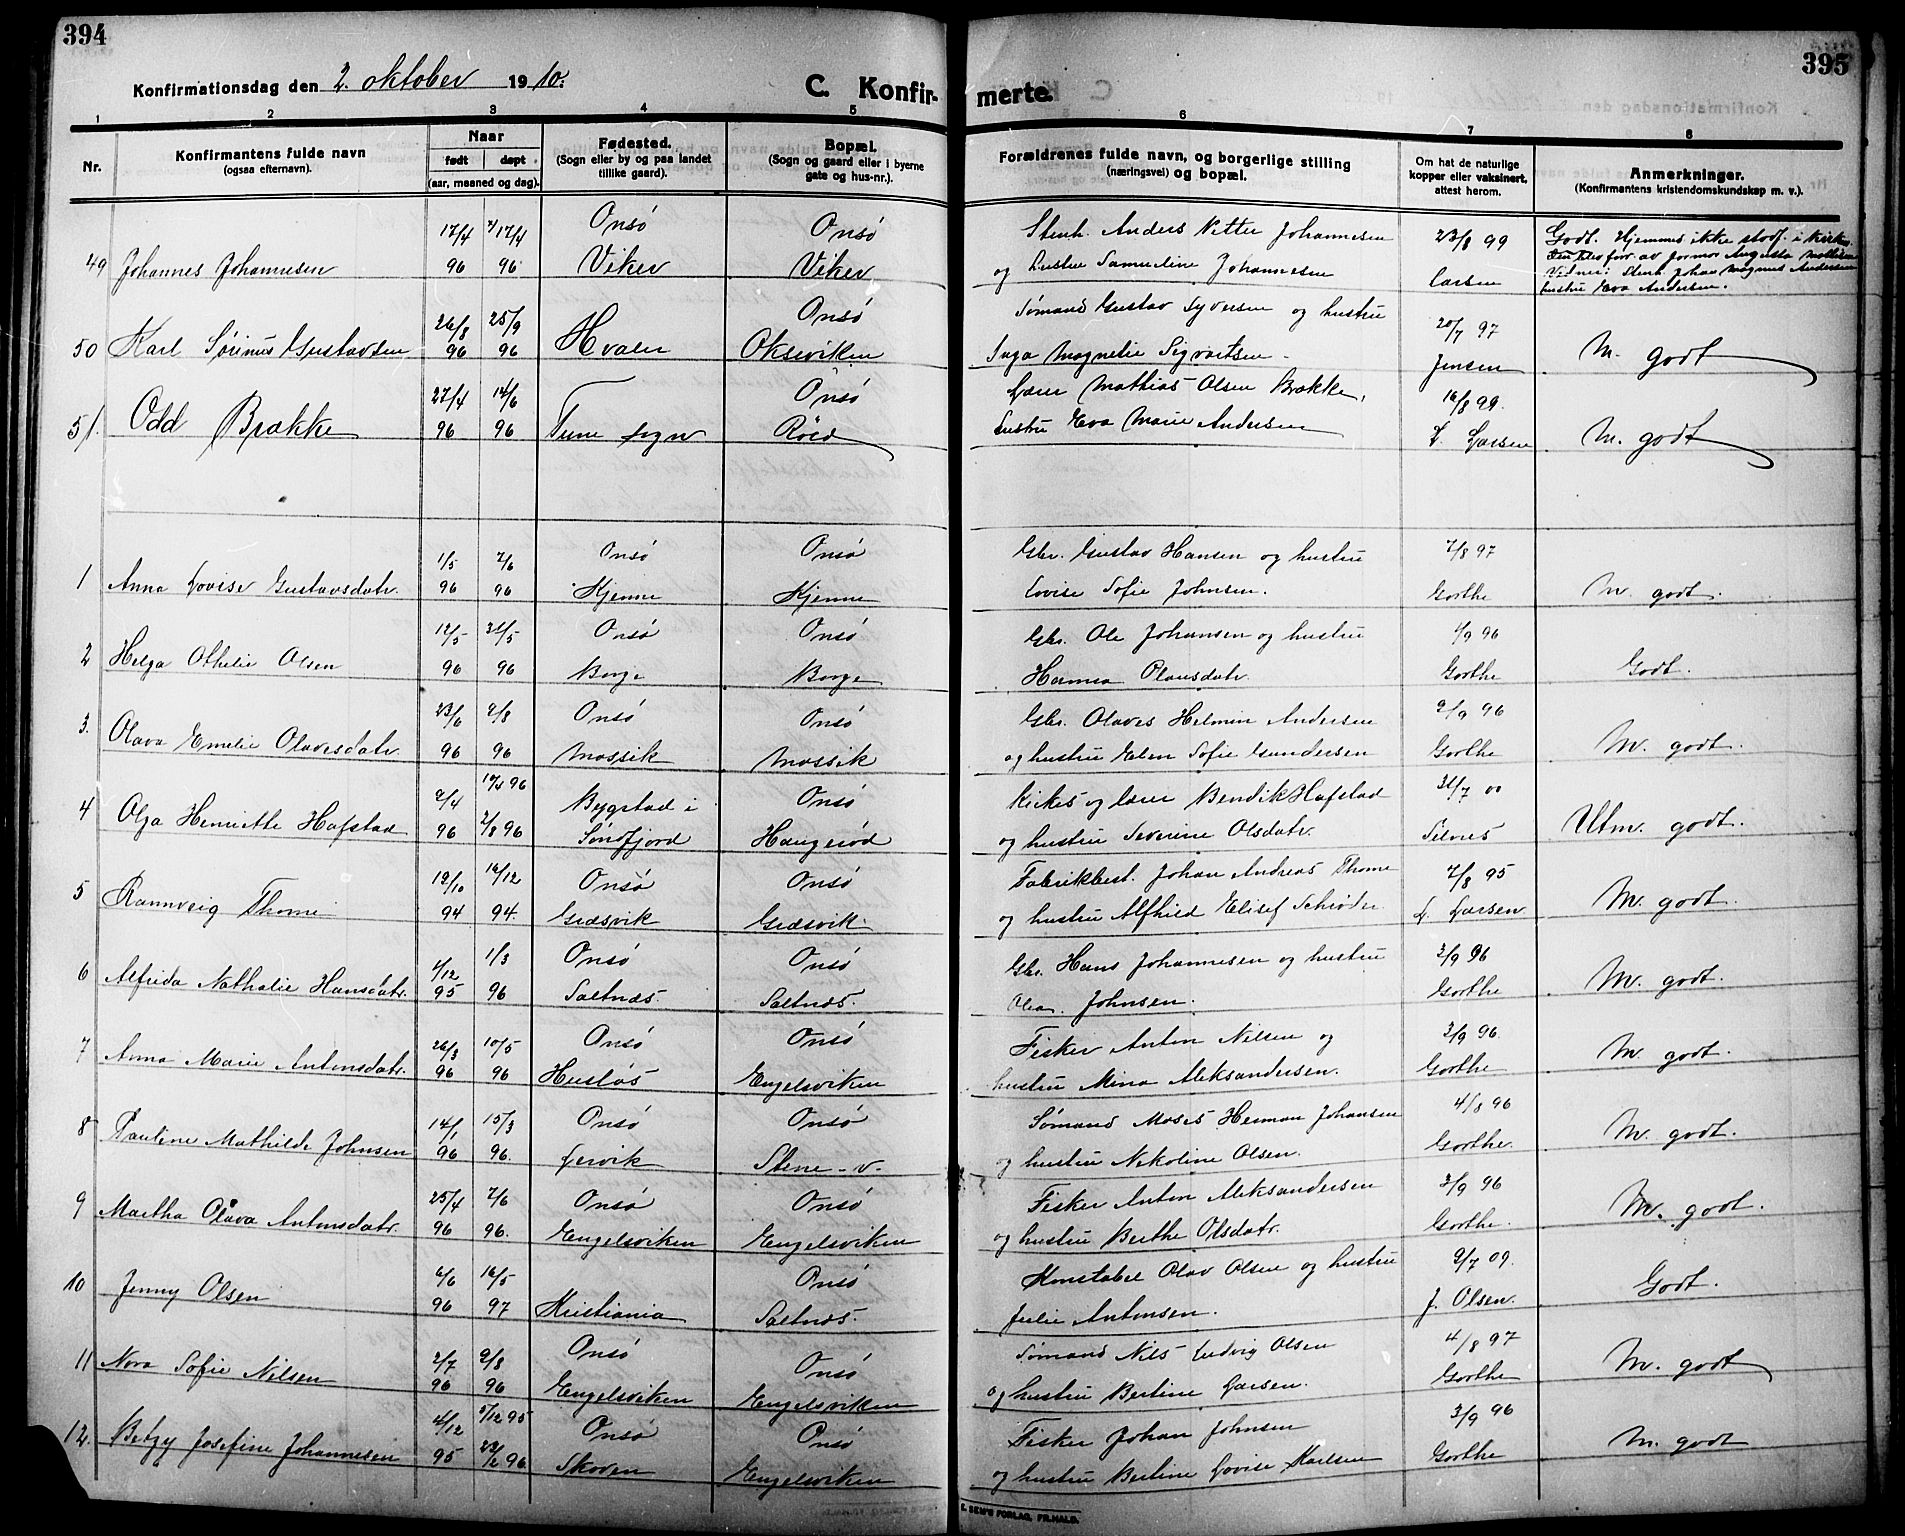 394
395
Konfirmationsdag den 2. oktober 1910.
C. Konfir-
merte.
1 2 3 4 5 6 7 8
Nr.
Konfirmantens fulde navn
(ogsaa efternavn).
Naar
født døpt
(aar, maaned og dag).
Fødested.
(Sogn eller by og paa landet
tillike gaard).
Bopæl.
(Sogn og gaard eller i byerne
gate og hus-nr.).
Forældrenes fulde navn, og borgerlige stilling
(næringsvei) og bopæl.
Om hat de naturlige
kopper eller vaksinert,
attest herom.
Anmerkninger.
(Konfirmantens kristendomskundskap m. v.).
17/4 17/4 Onsø Onsø Stenh. Anders Netter Johannesen 23/8 99 Godt. Hjemmed ikke stadf. i kirken
49 Johannes Johannesen 96 96 Viker Viker og hustru Samueline Johannesen Larsen
Vidner: Stenh. Johan Magnus Andersen
hustru Eva Andersen.
26/8 25/9 Onsø Sømand Gustav Syversen og hustru 20/7 97
50 Karl Sørinus Gustavsen 96 96 Hvaler Okseviken Inga Magnelie Sigvartsen Jensen M. godt
27/4 14/6 Onsø Lærer Mathias Olsen Brække, 16/8 99.
51. Odd Brække 96 96 Tune sogn Röed hustru Eva Marie Andersen L. Larsen M. godt
1/5 7/6 Onsø Onsø Gbr. Gustav Hansen og hustru 7/8 97
1 Anna Lovise Gustavsdatr. 96 96 Kjenne Kjenne Lovise Sofie Johnsen. Gorthe M. godt.
12/5 31/5 Onsø Onsø Gbr. Ole Johansen og hustru 1/9 96
2 Helga Othelie Olsen 96 96 Borge Borge Hanna Olausdatr. Gorthe Godt.
23/6 9/8 Onsø Onsø Gbr. Olaves Helmin Andersen 2/9 96
3. Olava Emelie Olavesdatr. 96 96 Mossik Mossik og hustru Elen Sofie Gundersen Gorthe M. godt.
2/4 19/4 96 Bygstad i Onsø Kirkes. og lærer Bendik Hafstad 31/7 00
4 Olga Henriette Hafstad 96 2/8 96 Søndfjord Haugerød og hustru Severine Olsdatr. Selnes Utm. godt.
19/10 16/12 Onsø Onsø Fabrikbest. Johan Andreas Thorne 7/8 95
5 Rannveig Thorne 94 94. Græsvik Græsvik. og hustru Alfhild Elisef Schrøder L. Larsen M. godt.
4/12 1/3 Onsø Onsø Gbr. Hans Johannesen og hustru 3/9 96
6 Alfrida Nathalie Hansdatr. 95 96 Saltnæs. Saltnæs. Olea Johnsen. Gorthe M. godt.
26/3 10/5 Onsø Onsø Fisker Anton Nilsen og 3/9 96.
7 Anna Marie Antonsdatr. 96 96 Husløs Engelsviken hustru Mina Aleksandersen. Gorthe M. godt.
14/1 15/3 Onsø Onsø Sømand Moses Herman Johansen 4/8 96
8 Pauline Mathilde Johnsen 96 96. Lervik Stene-v- og hustru Nikoline Olsen. Gorthe. M. godt.
25/4 7/6 Onsø Onsø Fisker Anton Aleksandersen 3/9 96
9 Martha Olava Antonsdatr. 96 96. Engelsviken Engelsviken og hustru Berthe Olsdatr. Gorthe. M. godt.
6/6 16/5 Onsø Konstabel Olav Olsen og hustru 9/7 09.
10 Jenny Olsen 96 97 Kristiania Saltnæs. Julie Antonsen. J. Olsen. Godt.
2/7 9/8 Onsø Onsø Sømand Nils Ludvig Olsen 4/8 97
11 Nora Sofie Nilsen 96 96 Engelsviken Engelsviken og hustru Bertine Larsen. Gorthe M. godt
4/12 5/12 95 Onsø Onsø Fisker Johan Johnsen 3/9 96
12. Betzy Josefine Johannesen 95 23/2 96 Skoven Engelsviken og hustru Bertine Lovise Karlsen Gorthe M. godt
E. SEM'S FORLAG, FR.HALD.